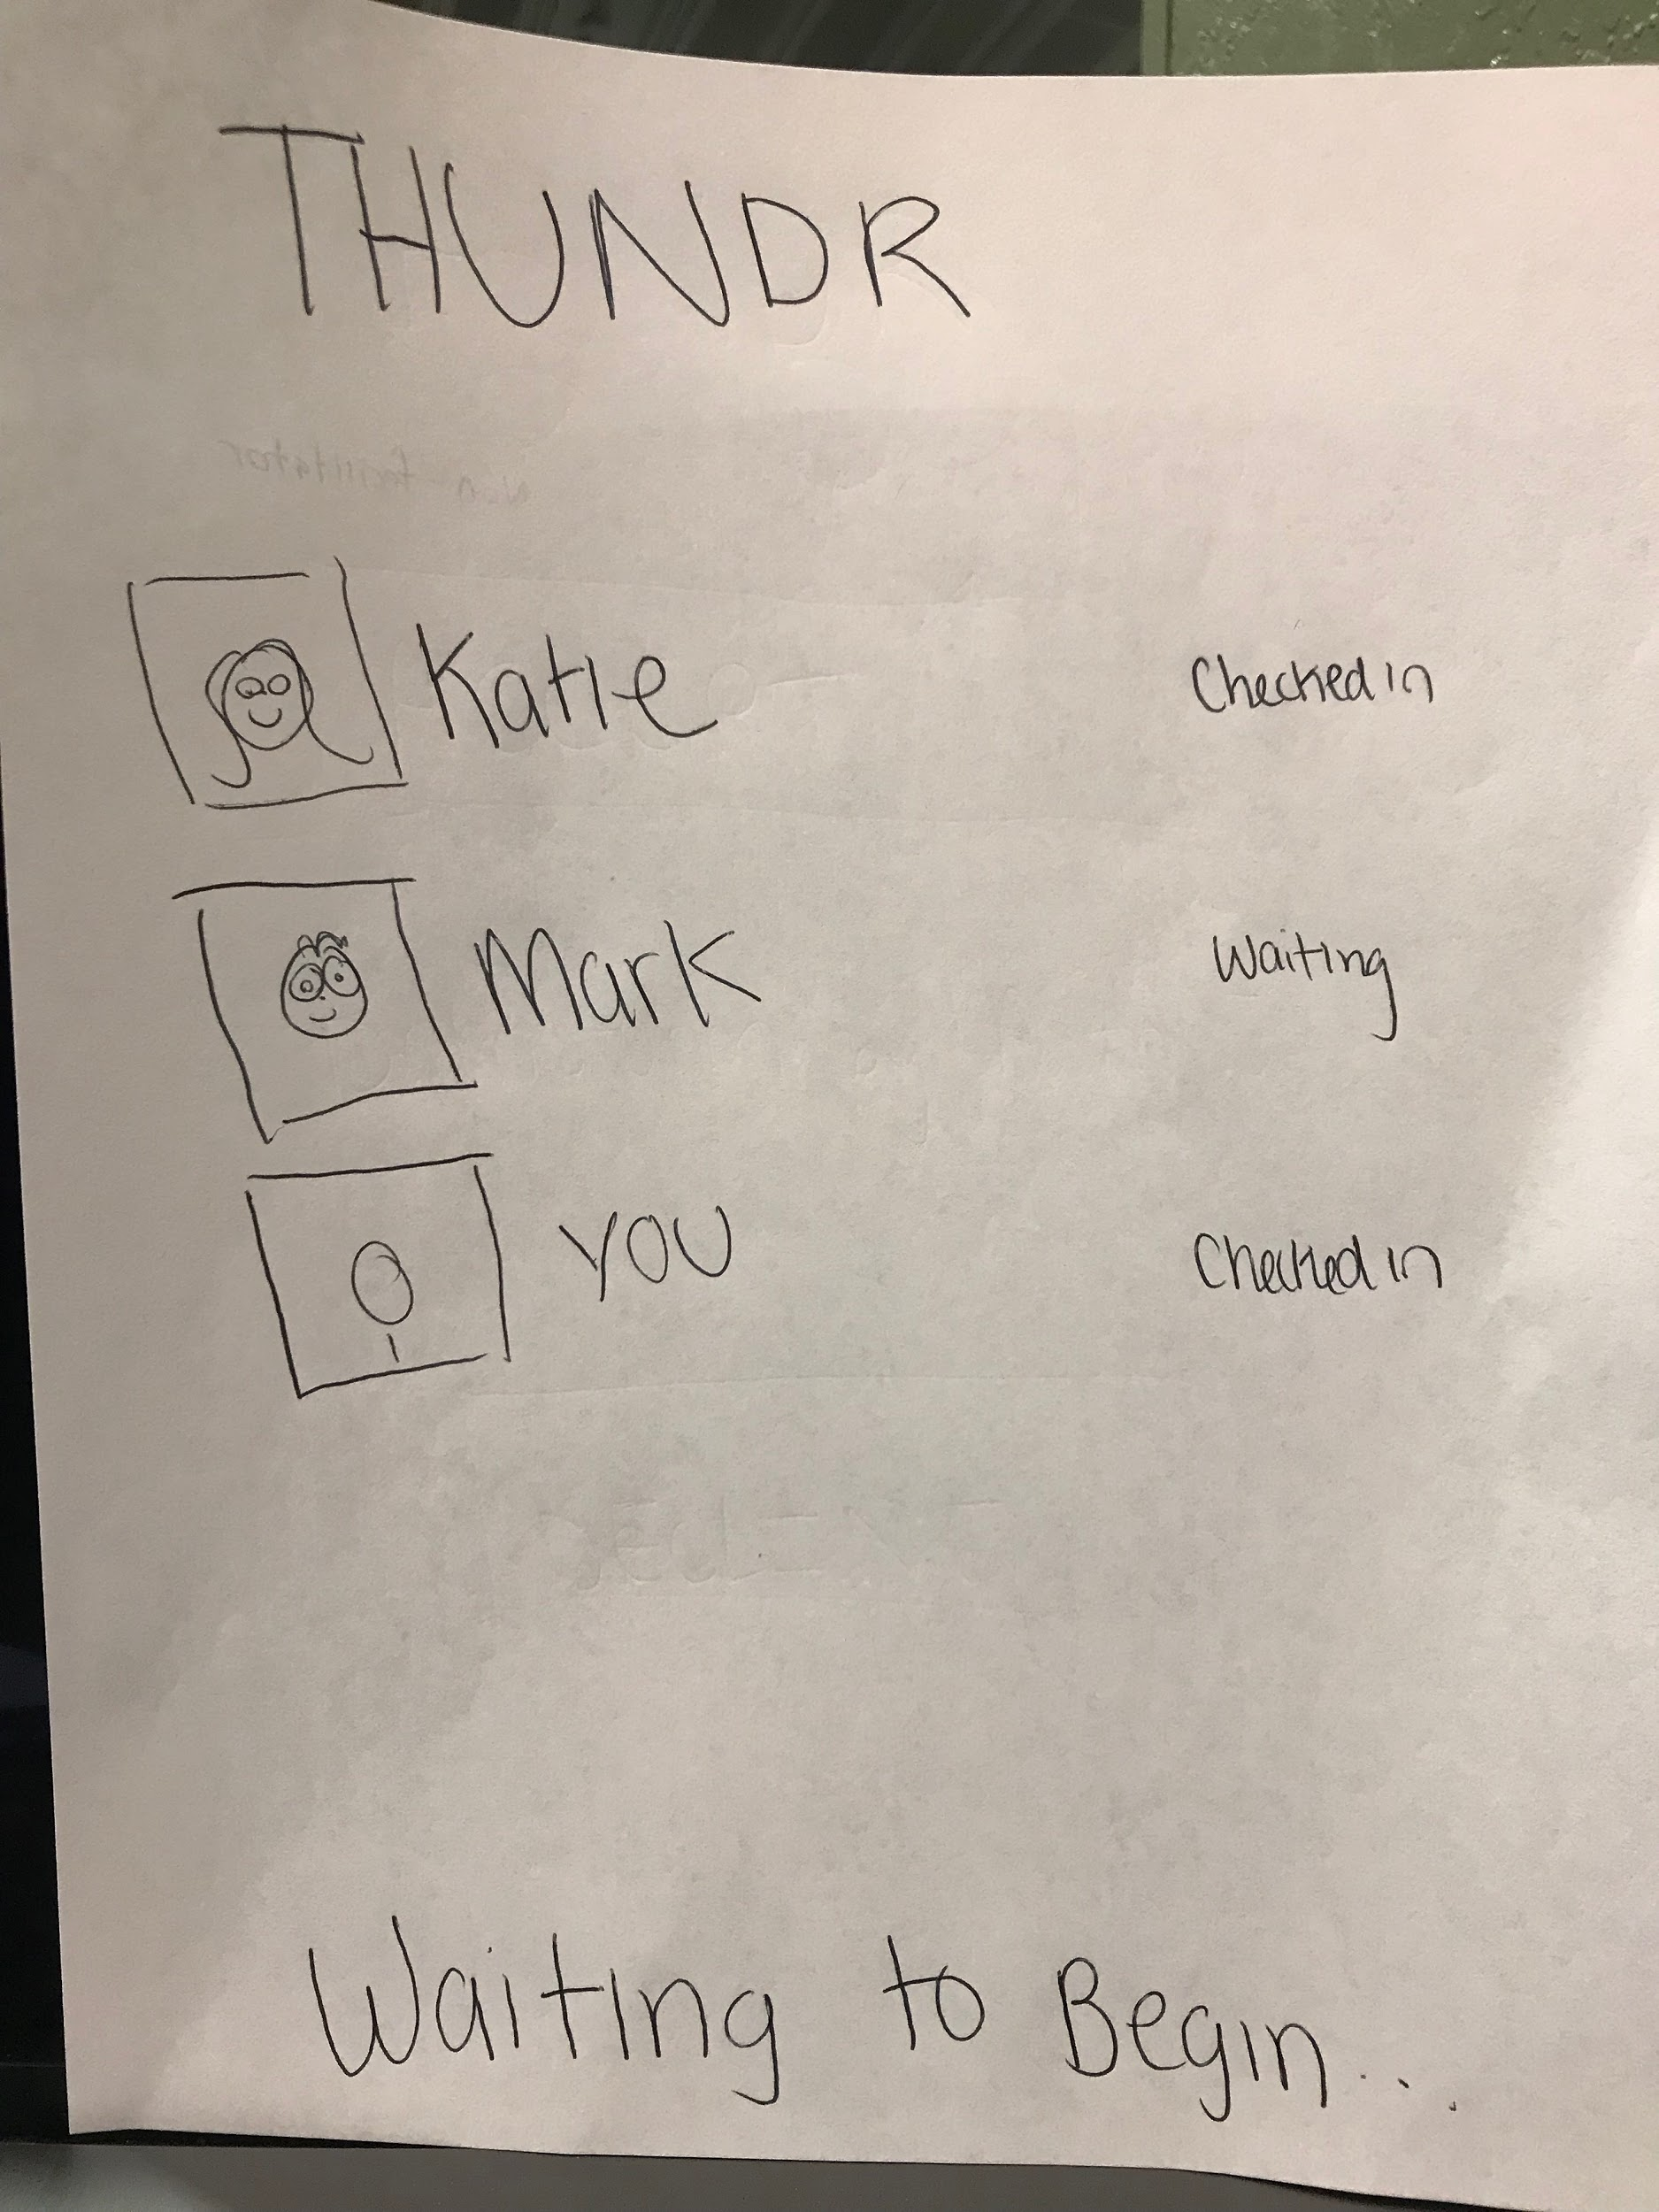 THUNDR
Non-facilitator
Katie Checked in
Mark Waiting
YOU Checked in
Waiting to Begin...